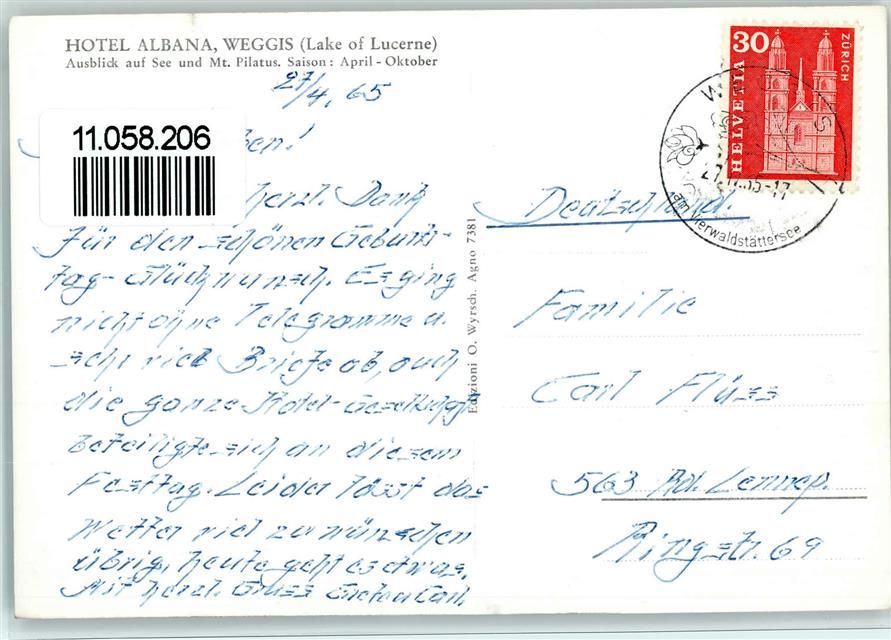 HOTEL ALBANA, WEGGIS (Lake of Lucerne)
Ausblick auf See und Mt. Pilatus. Saison: April - Oktober
27/4. 65
11.058.206
herzl. Dank
für den schönen Geburts-
tag-Glückwunsch. Es ging
nicht ohne Telegramme u.
sehr viele Briefe ab, auch
die ganze Hotel-Gesellschaft
beteiligte sich an diesem
Festtag. Leider lässt das
Wetter viel zu wünschen
übrig, heute geht es etwas.
Mit herzl. Gruss Carl.
Edizioni O. Wyrsch. Agno 7381
30
HELVETIA
ZÜRICH
am Vierwaldstättersee
Deutschland.
Familie
Carl Flüss
563 Rd. Lennep.
Ringstr. 69